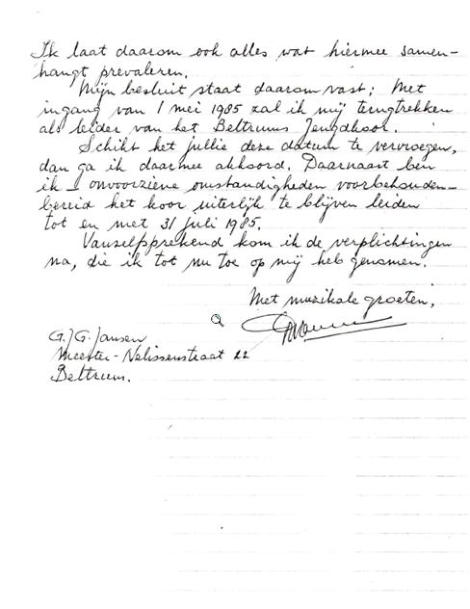 Ik laat daarom ook alles wat hiermee samen-
hangt prevaleren.
Mijn besluit staat daarom vast: Met
ingang van 1 mei 1985 zal ik mij terugtrekken
als leider van het Beltrums Jeugdkoor.
Schikt het jullie deze datum te vervroegen,
dan ga ik daarmee akkoord. Daarnaast ben
ik - onvoorziene omstandigheden voorbehouden-
bereid het koor uiterlijk te blijven leiden
tot en met 31 juli 1985.
Vanzelfsprekend kom ik de verplichtingen
na, die ik tot nu toe op mij heb genomen.
Met muzikale groeten,
G.J.G. Jansen
Meester-Nelissenstraat 22
Beltrum.